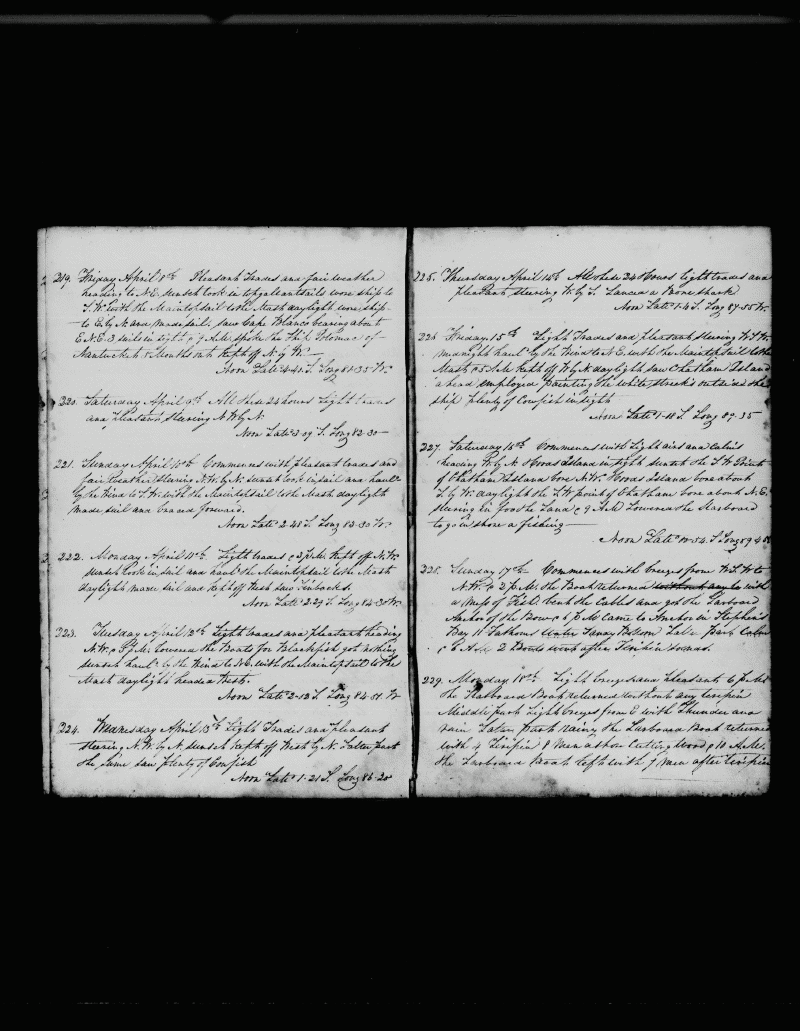 219. Friday April 8th Pleasant Trades and fair weather
heading to N.E. sunset took in topgalantsails wore ship to
S.W. with the Maintopsail to the Mast daylight wore ship
to E. by N. and made sail. saw Cape Blanco bearing about
E.N.E. 3 sails in sight & 7 A.M. spoke the Ship Potomac of
Nantucket 5 Months out kept off N. by W.
Noon Latd 4-41 S. Long 81-35 W.
220. Saturday April 9th All these 24 hours Light trades
and pleasant steering N.W. by N.
Noon Latd 3-09 S. Long 82-30
221. Sunday April 10th Commences with pleasant trades and
fair weather steering N.W. by N. sunset took in sail and haul'd
by the Wind to S.W. with the Maintopsail to the Mast daylight
made sail and braced forward.
Noon Latd 2-48 S. Long 83-30 W.
222. Monday April 11th Light trades & 2 P.M. kept off N.W.
sunset took in sail and haul'd the Maintopsail to the Mast
daylight made sail and kept off West saw Finbacks.
Noon Latd 2-29 S. Long 84-30 W.
223. Tuesday April 12th Light trades and pleasant heading
N.W. & P.M. Lowered the Boats for Blackfish got nothing
sunset haul'd by the Wind to N.E. with the Maintopsail to the
Mast daylight headed West.
Noon Latd 2-12 S. Long 84-51 W
224. Wednesday April 13th Light Trades and pleasant
steering N.W. by N. sunset kept off West by N. Latter part
the same saw plenty of Cowfish
Noon Latd 1-21 S. Long 86-20
225. Thursday April 14th All these 24 Hours light trades and
pleasant steering W. by S. Lanced a Boneshark
Noon Latd 1-4 S. Long 87-55 W.
226. Friday 15th Light Trades and pleasant steering W.S.W.
midnight haul'd by the Wind to N.E. with the Maintopsail to the
Mast & 5 A.M. kept off W. by N. daylight saw Chatham Island
ahead employed painting the white streak outside the
ship plenty of Cowfish in sight
Noon Latd 1-11 S. Long 89-35
227. Saturday 16th Commences with Light airs and calms
heading W. by N. Hoods Island in sight sunset the S.W. Point
of Chatham Island bore N.W. Hoods Island bore about
S. by W. daylight the S.W. point of Chatham bore about N.E.
steering in for the Land & 9 A.M Lowered the Starboard
to go in shore a fishing
Noon Latd 00-54 S Long 89
228. Sunday 17th Commences with breezes from W.S.W. to
N.W. & 2 P.M. the Boat returned without any to with
a mess of Fish. bent the Cables and got the Larboard
Anchor of the Bows & 6 P.M Came to Anchor in Stephen's
Bay 11 Fathoms Water Sandy Bottom Latter part Calm
& 6 A.M. 2 Boats went after Terrapin
229. Monday 18th Light breezes and pleasant 6 P.M.
the Starboard Boat returned without any terrapin
Middle part Light breezes from E with Thunder and
rain Latter part rainy the Larboard Boat returned
with 4 Terrapin 8 Men ashore cutting Wood & 10 A.M.
the Larboard Boat left with 7 Men after terrapin